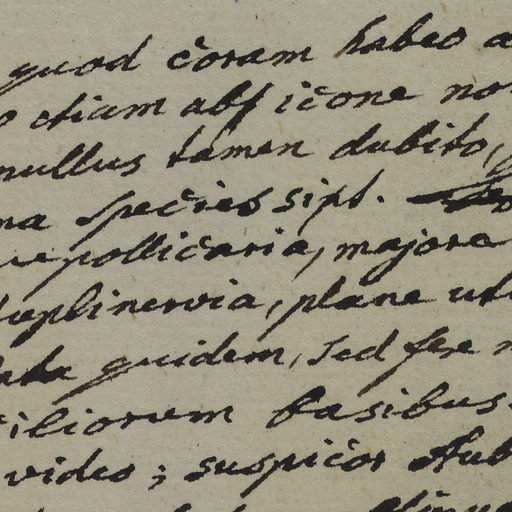 quod coram habeo a
o etiam absq icone non
nullus tamen dubito,
na species sist.
repollicaria, majore
tuplinervia, plane uti
quidem, sed fere n
iliorum basibus
video; suspicor Aub